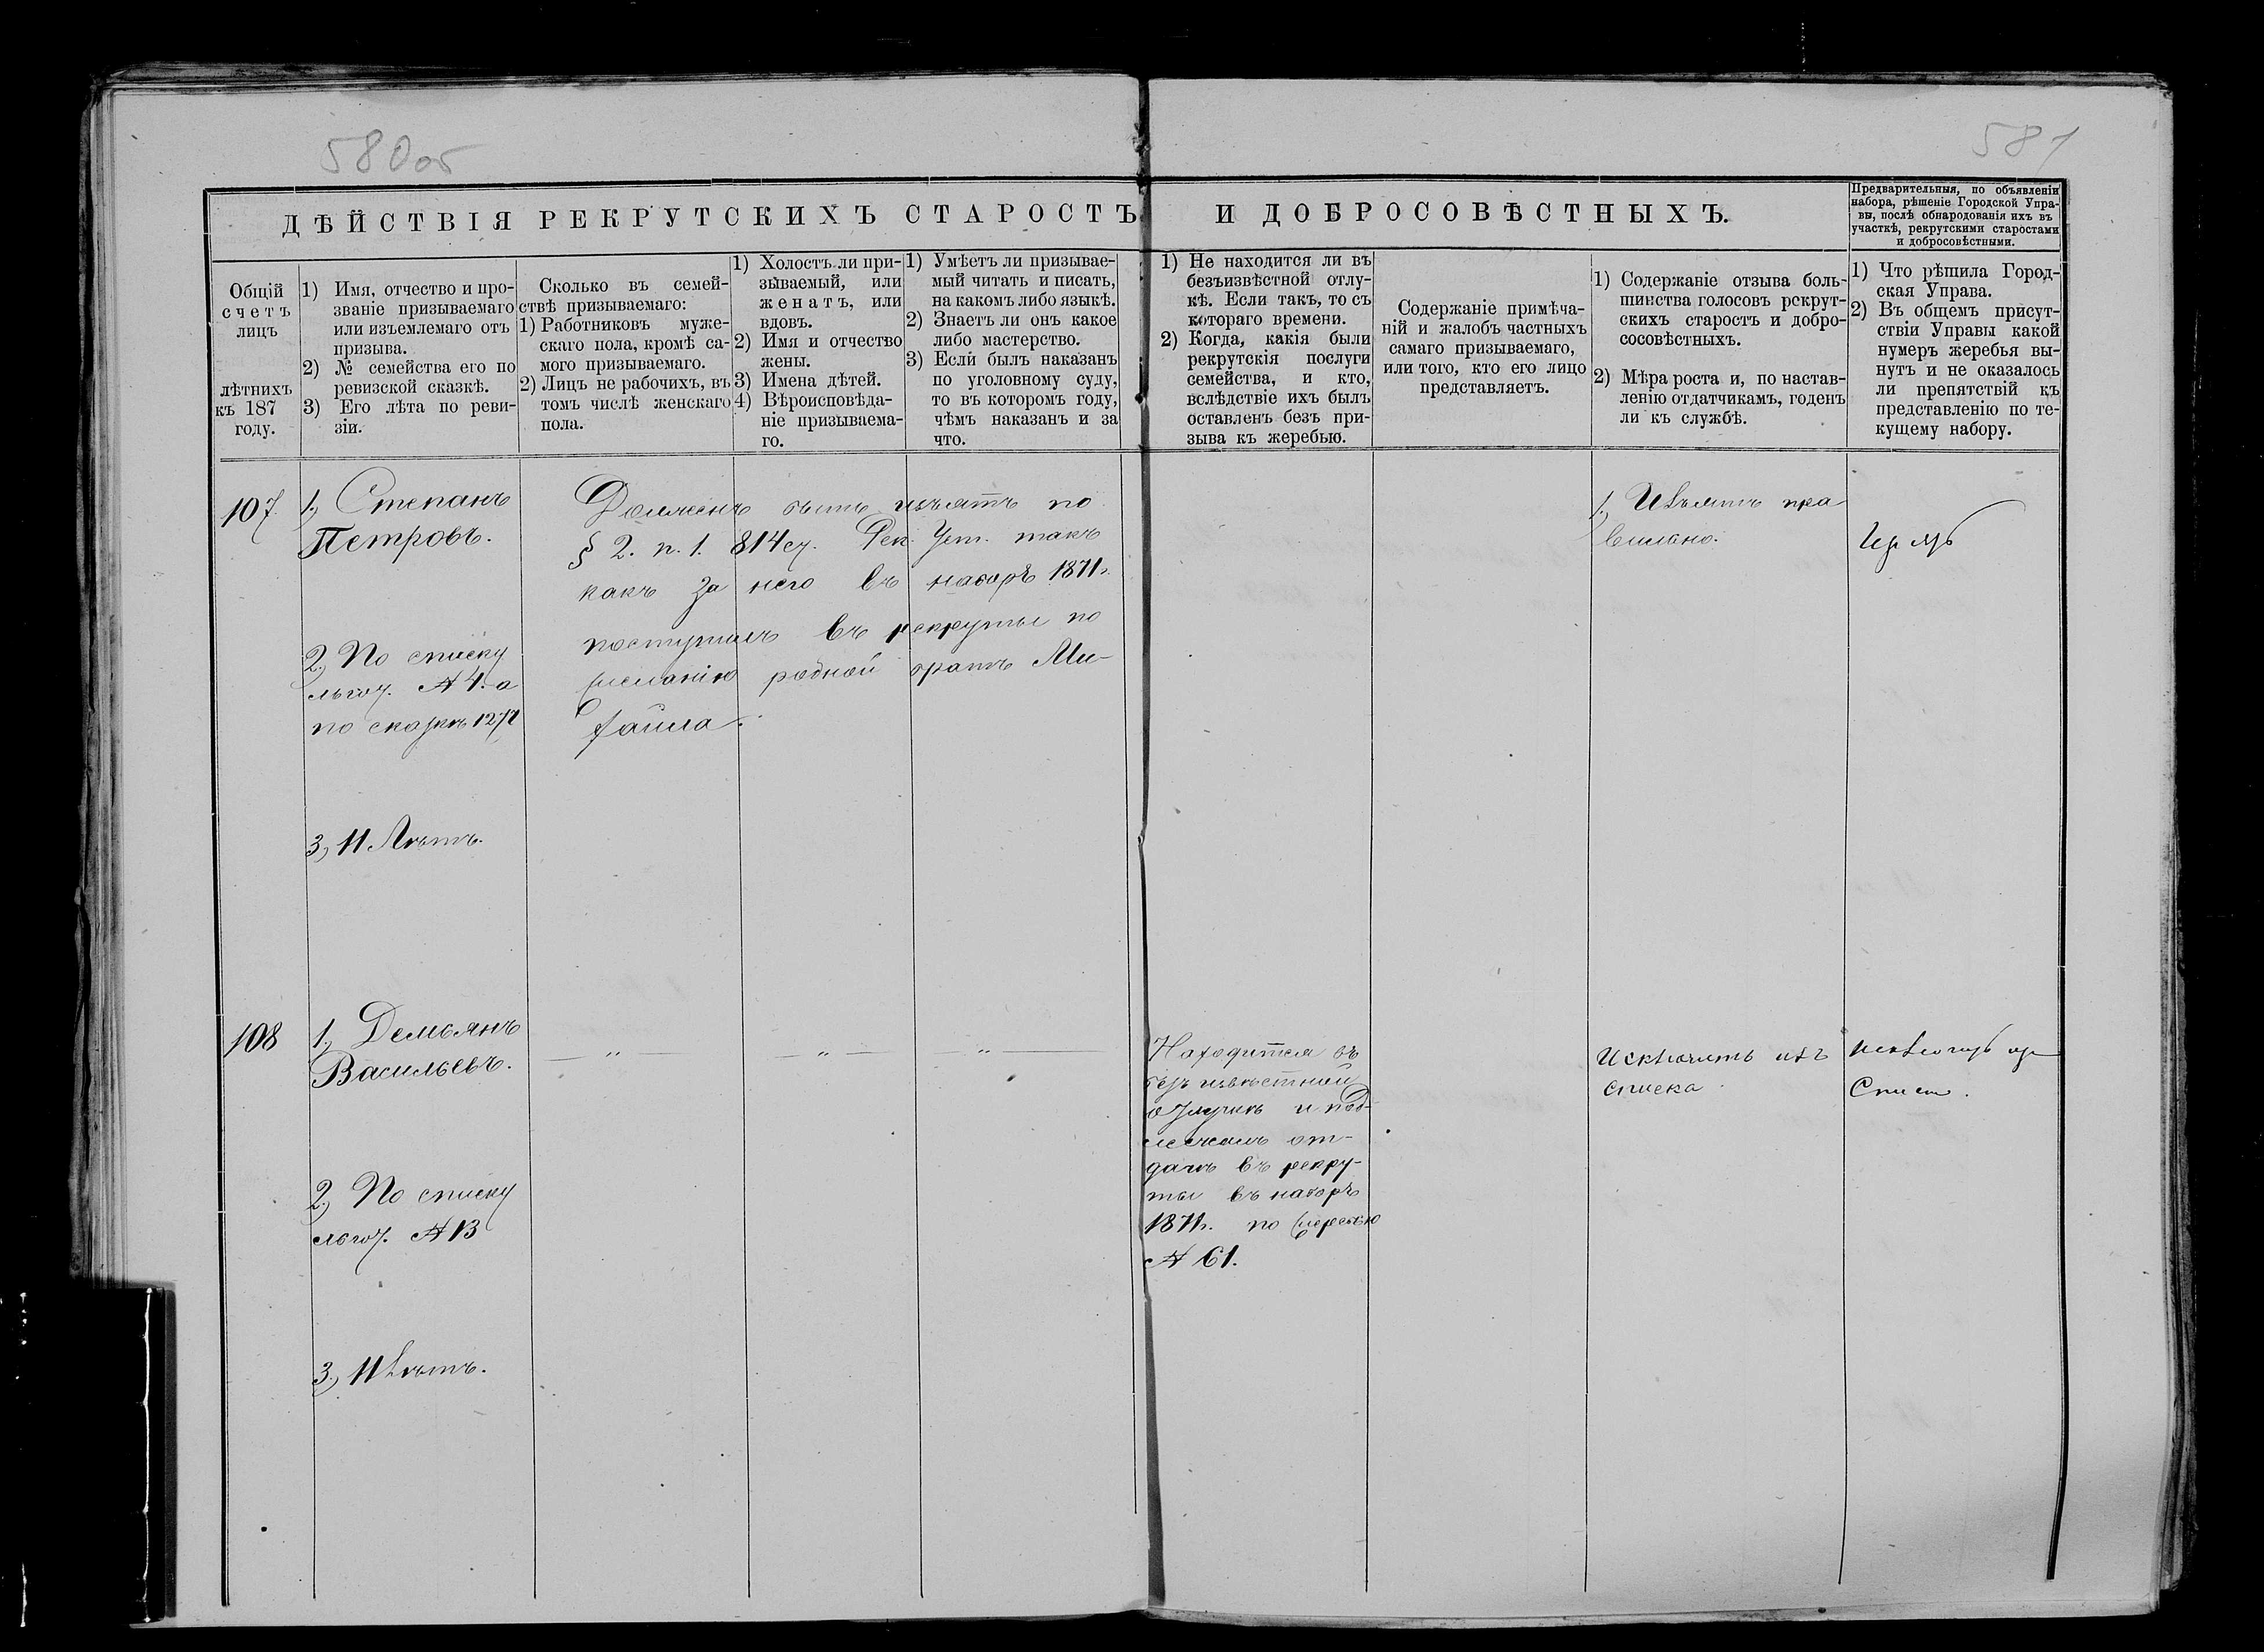 580об
581
ДѢЙСТВІЯ РЕКРУТСКИХЪ СТАРОСТЪ И ДОБРОСОВѢСТНЫХЪ.
Предварительныя, по объявленіи
набора, рѣшеніе Городской Упра-
вы, послѣ обнародованія ихъ въ
участкѣ, рекрутскими старостами
и добросовѣстными.
Общій
счетъ
лицъ
лѣтнихъ
къ 187
году.
1) Имя, отчество и про-
званіе призываемаго
или изъемлемаго отъ
призыва.
2) № семейства его по
ревизской сказкѣ.
3) Его лѣта по реви-
зіи.
Сколько въ семей-
ствѣ призываемаго:
1) Работниковъ муже-
скаго пола, кромѣ са-
мого призываемаго.
2) Лицъ не рабочихъ, въ
томъ числѣ женскаго
пола.
1) Холостъ ли при-
зываемый, или
женатъ, или
вдовъ.
2) Имя и отчество
жены.
3) Имена дѣтей.
4) Вѣроисповѣда-
ніе призываема-
го.
1) Умѣетъ ли призывае-
мый читать и писать,
на какомъ либо языкѣ.
2) Знаетъ ли онъ какое
либо мастерство.
3) Если былъ наказанъ
по уголовному суду,
то въ которомъ году,
чѣмъ наказанъ и за
что.
1) Не находится ли въ
безъизвѣстной отлу-
кѣ. Если такъ, то съ
котораго времени.
2) Когда, какія были
рекрутскія послуги
семейства, и кто,
вслѣдствіе ихъ былъ
оставленъ безъ при-
зыва къ жеребью.
Содержаніе примѣча-
ній и жалобъ частныхъ
самаго призываемаго,
или того, кто его лицо
представляетъ.
1) Содержаніе отзыва боль-
шинства голосовъ рекрут-
скихъ старостъ и добро-
сосовѣстныхъ.
2) Мѣра роста и, по настав-
ленію отдатчикамъ, годенъ
ли къ службѣ.
1) Что рѣшила Город-
ская Управа.
2) Въ общемъ присут-
ствіи Управы какой
нумеръ жеребья вы-
нутъ и не оказалось
ли препятствій къ
представленію по те-
кущему набору.
107.
1., Степанъ
Петровъ.
2., По списку
льгот. № 4. а
по сказкѣ 1271
3., 11 Лѣтъ.
Долженъ быть изъятъ по
§ 2. п. 1. 814 ст. Рек. Уст. такъ
какъ за него въ наборъ 1871г.
поступилъ въ рекруты по
желанію родной братъ Ми-
хаила.
1., Изъятъ пра
вильно.
108
1., Демьянъ
Васильевъ.
2., По списку
льгот. № 13
3., 11 Лѣтъ.
— „ — — „ — — „ —
Находится въ
безъизвѣстной
отлучкѣ и под-
лежалъ от-
дачѣ въ рекру-
ты въ наборъ
1871г. по жеребью
№ 61.
Исключить изъ
списка